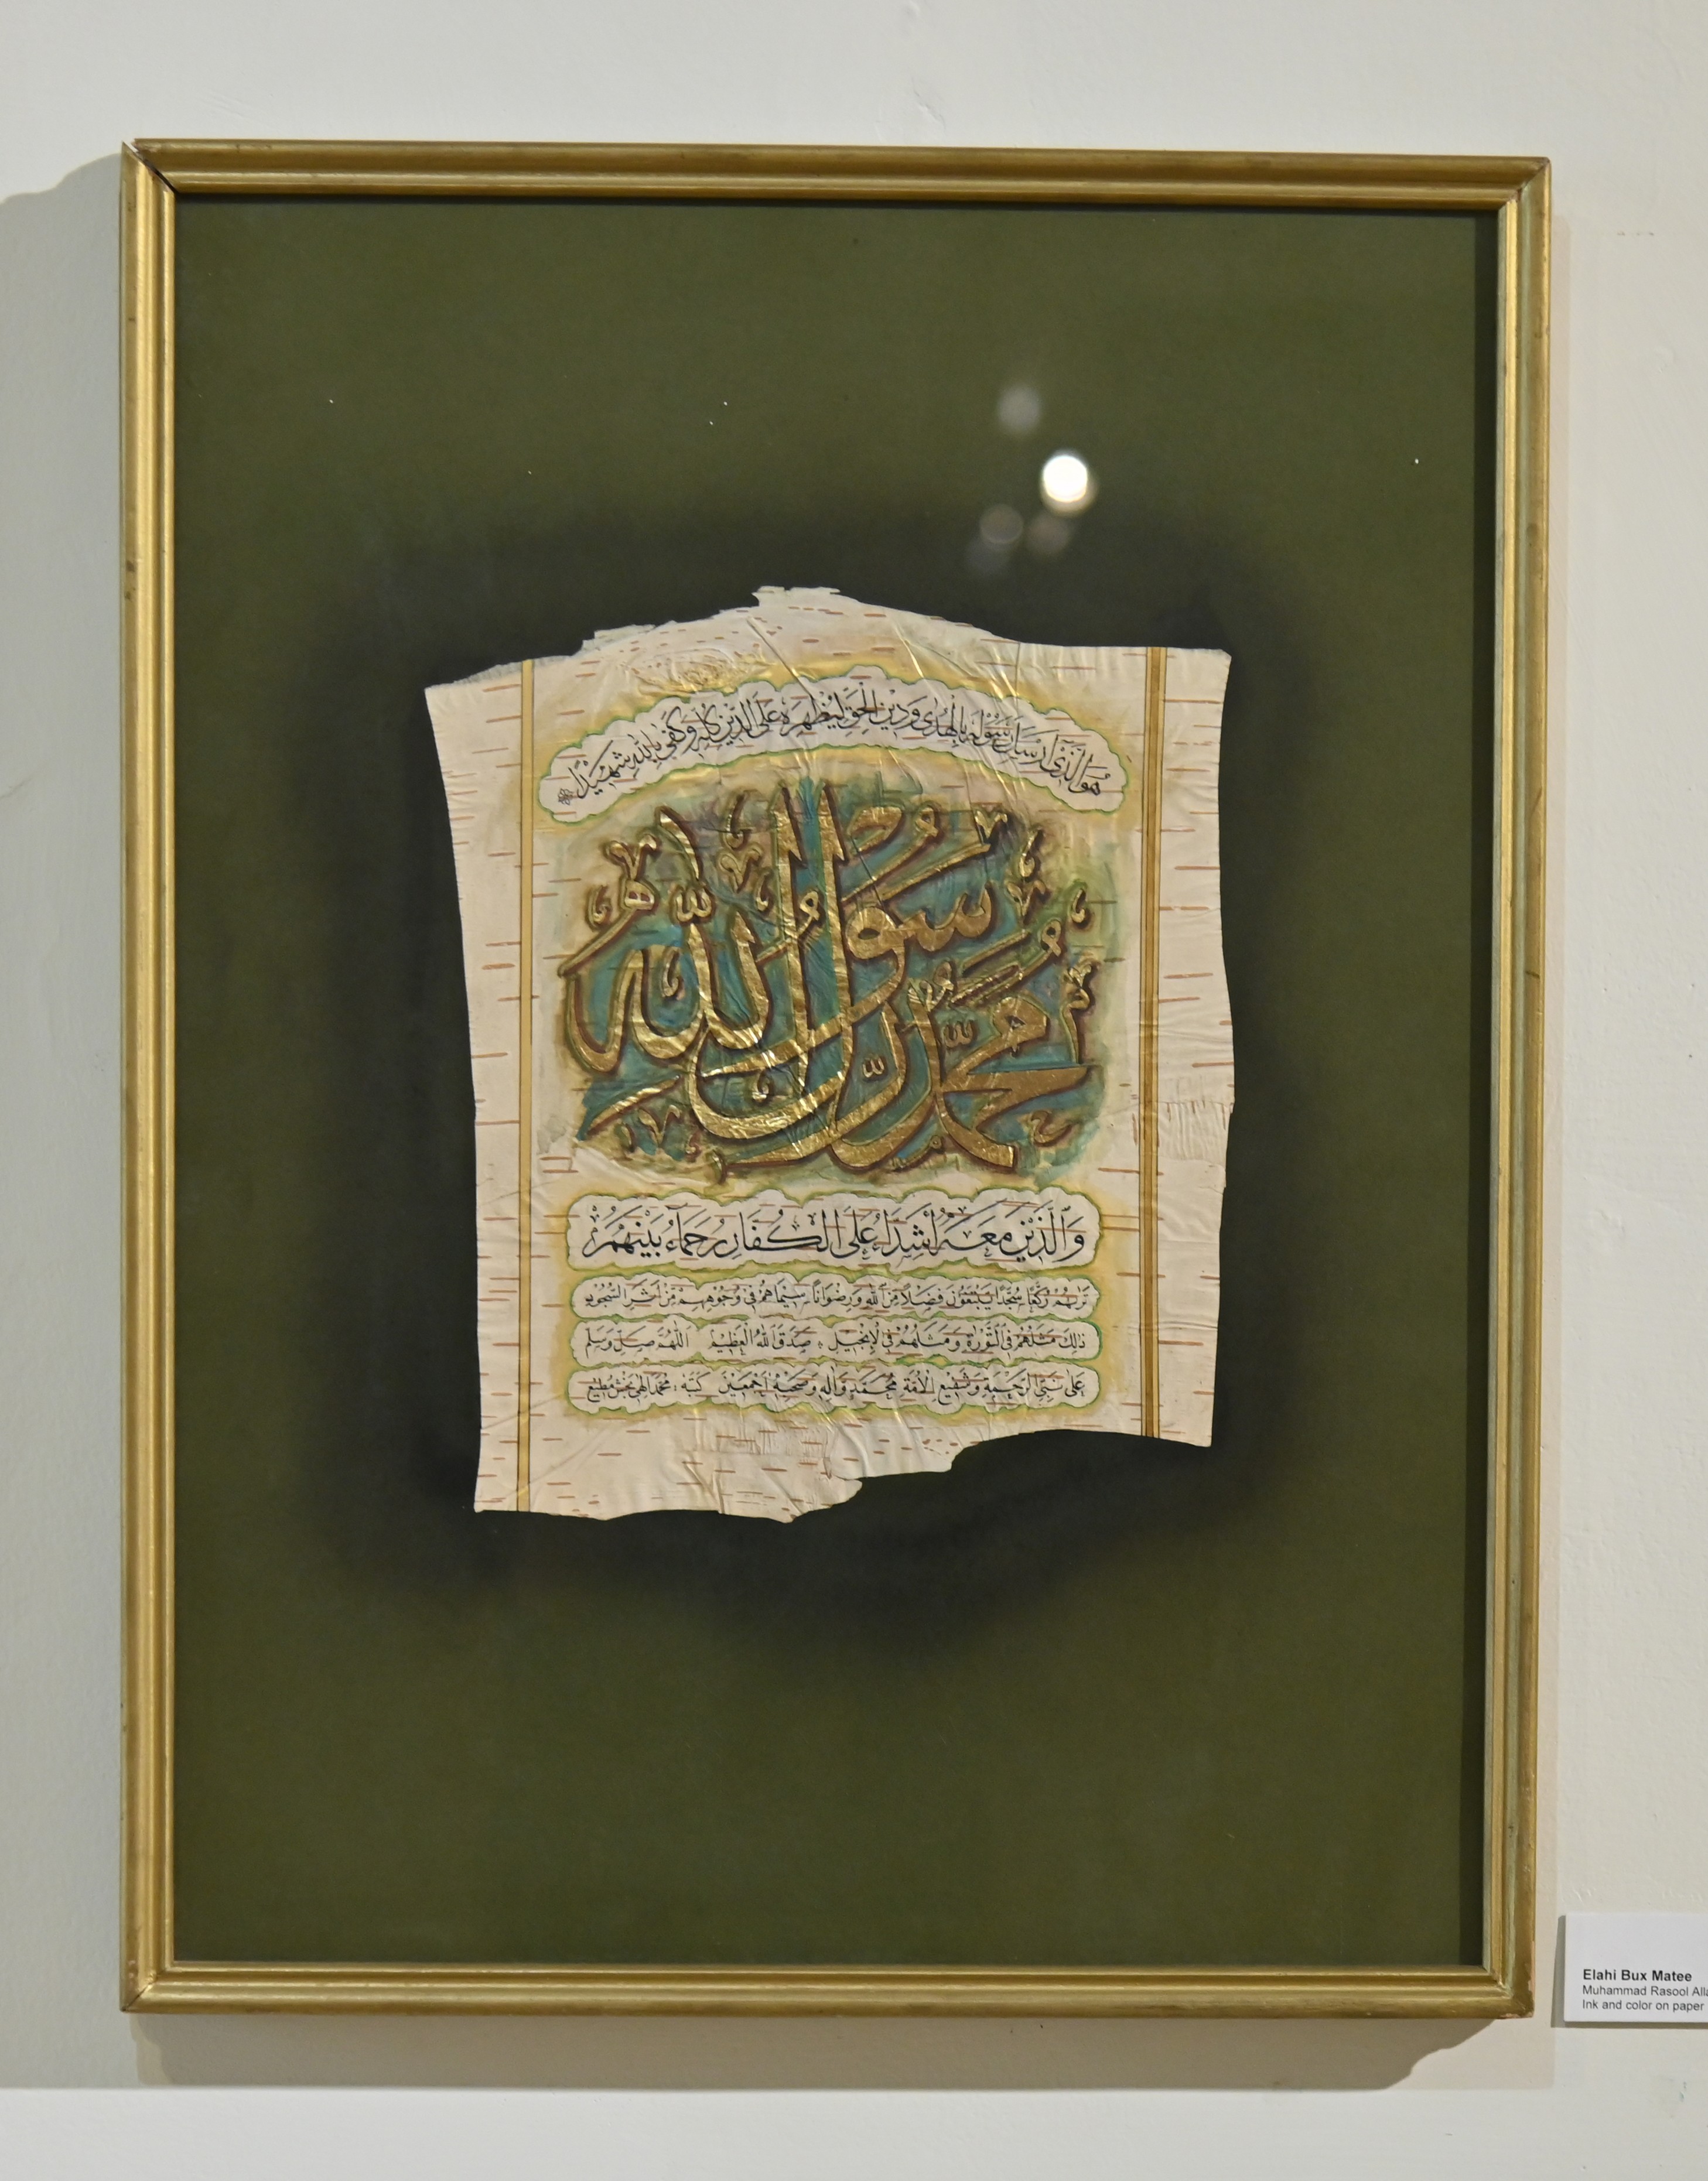 هُوَ الَّذِىٓ اَرْسَلَ رَسُوْلَهٗ بِالْهُدٰى وَدِيْنِ الْحَقِّ لِيُظْهِرَهٗ عَلَى الدِّيْنِ كُلِّهٖ وَكَفٰى بِاللّٰهِ شَهِيْدًا
مُحَمَّدٌ رَّسُوْلُ اللّٰهِ
وَالَّذِيْنَ مَعَهٗٓ اَشِدَّآءُ عَلَى الْكُفَّارِ رُحَمَآءُ بَيْنَهُمْ
تَرٰىهُمْ رُكَّعًا سُجَّدًا يَّبْتَغُوْنَ فَضْلًا مِّنَ اللّٰهِ وَرِضْوَانًا سِيْمَاهُمْ فِىْ وُجُوْهِهِمْ مِّنْ اَثَرِ السُّجُوْدِ
ذٰلِكَ مَثَلُهُمْ فِى التَّوْرٰىةِ وَمَثَلُهُمْ فِى الْاِنْجِيْلِ صَدَقَ اللّٰهُ الْعَظِيْمُ اَللّٰهُمَّ صَلِّ وَسَلِّمْ
عَلٰى نَبِىِّ الرَّحْمَةِ وَشَفِيْعِ الْاُمَّةِ مُحَمَّدٍ وَّاٰلِهٖ وَصَحْبِهٖ اَجْمَعِيْنَ كتبه محمد الٰهی بخش مطیع
Elahi Bux Matee
Muhammad Rasool Alla
Ink and color on paper